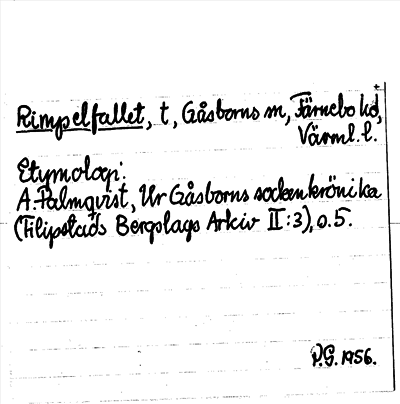 Rimpelfallet, t, Gåsborns sn, Färnebo hd,
Värml. l.
Etymologi:
A. Palmqvist, Ur Gåsborns sockenkrönika
(Filipstads Bergslags Arkiv II:3), s. 5.
P.G. 1956.